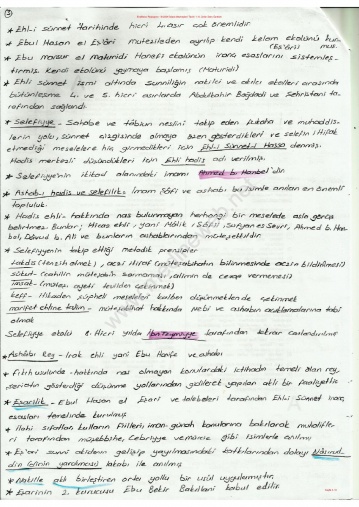 * Ehl-i sünnet tarihinde hicri 4. asır çok önemlidir.
* Ebul Hasan el Eş'âri mutezileden ayrılıp kendi kelam ekolünü kur-
(Eş'âri) muş.
* Ebu mansur el maturidi Hanefi ekolünün inanç esaslarını sistemleş-
tirmiş. kendi ekolünü yaymaya başlamış (Maturidi)
* Ehli sünnet ismi altında sünniliğin nakilci ve akılcı ekolleri arasında
bütünleşme 4. ve 5. hicri asırlarda Abdulkahir Bağdadi ve Şehristani ta-
rafından sağlandı.
* Selefiyye - Sahabe ve tâbiun neslini takip eden fukaha ve muhaddis-
lerin yolu, sünnet çizgisinde olmaya özen gösterdikleri ve selefin ittifak
etmediği meselelere hiç girmedikleri için Ehl-i Sünnet-i Hassa denmiş.
Hadis merkezli düşündükleri için Ehli hadis adı verilmiş.
* Selefiyye'nin itikad alanındaki imamı Ahmed b. Hanbel'dir
* Ashabı hadis ve selefilik - İmam Şafi ve ashabı bu isimle anılan en önemli
topluluk.
* Hadis ehli - hakkında nas bulunmayan herhangi bir meselede asla görüş
belirtmez. Bunlar; Hicaz ehli, yani Mâlik, Şâfii, Sufyan es Sevri, Ahmed b. Han-
bel, Davud b. Ali ve bunların ashabından müteşekkildir.
* Selefiyyenin takip ettiği metodik prensipler
takdis (tenzih etmek), aczi itiraf (müteşabihatın bilinmesinde aczin bildirilmesi)
sükut - (cahilin müteşabih sormaması, alimin de cevap vermemesi)
imsak - (mütes. ayeti tevilden çekinmek)
keff - Hikaden şüpheli meseleleri kalben düşünmekten de çekinmek
marifet ehline teslim - müteşabihat hakkında Nebi ve ashabın açıklamalarına tabi
olmak
Selefiyye ekolü 8. Hicri yılda İbn Teymiyye tarafından tekrar canlandırılmış
* Ashâbı Rey - Irak ehli yani Ebu Hanife ve ashabı
* Fıkıh usulünde - hakkında nas olmayan konulardaki ictihadın temeli olan rey,
şeriatın gösterdiği düşünme yollarından gidilerek yapılan akli bir faaliyettir
* Eşarilik - Ebul Hasan el Eşari ve talebeleri tarafından Ehli Sünnet inanç
esasları temelinde kurulmuş
* İlahi sıfatlar, kulların fiilleri, iman, günah konularına bakılarak muhalifle-
ri tarafından müşebbihe, Cebriyye ve mürcie gibi isimlerle anılmış
* Eş'ari sünni akidenin gelişip yayılmasındaki katkılarından dolayı Nâsırud-
din (dinin yardımcısı) lakabı ile anılmış
* Nakille aklı birleştiren orta yollu bir usül uygulamıştır.
* Eşarinin 2. kurucusu Ebu Bekir Bakıllani kabul edilir.